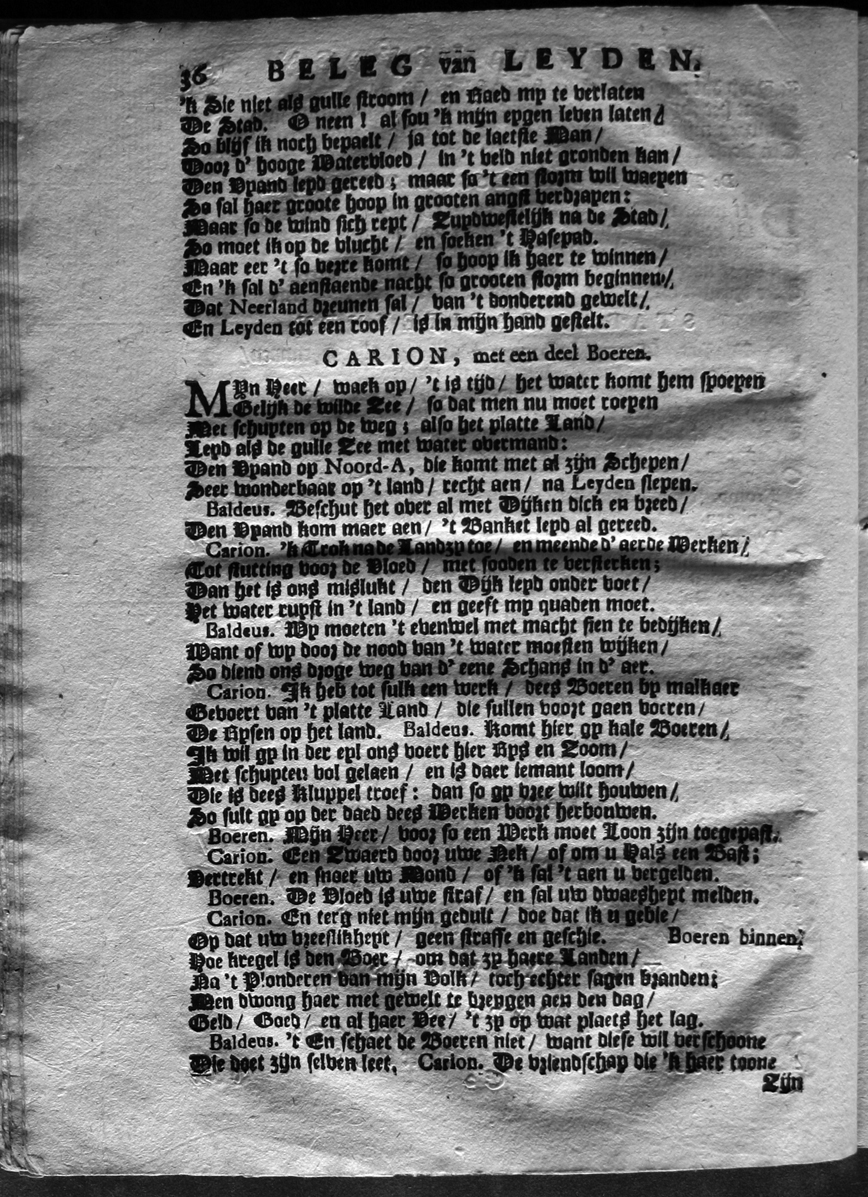 36 BELEG van LEYDEN.
'k Sie niet als gulle stroom / en Raed my te verlaten
De Stad. O neen ! al sou 'k mijn eygen leven laten /
So blijf ik noch bepaelt / ja tot de laetste Man /
Door d' hooge Watervloed / in 't veld niet gronden kan /
Den Vyand leyd gereed ; maar so 't een storm wil waeyen
So sal haer groote hoop in grooten angst verdrayen :
Maar so de wind sich rept / Zuydwestelijk na de Stad /
So moet ik op de vlucht / en soeken 't Hasepad.
Maar eer 't so verre komt / so hoop ik haer te winnen /
En 'k sal d' aenstaende nacht so grooten storm beginnen /
Dat Neerland dreunen sal / van 't donderend gewelt /
En Leyden tot een roof / is in mijn hand gestelt.
CARION, met een deel Boeren.
MYn Heer / waek op / 't is tijd / het water komt hem spoeyen
Gelijk de wilde Zee / so dat men nu moet roeyen
Met schuyten op de weg ; also het platte Land /
Leyd als de gulle Zee met water overmand :
Den Vyand op Noord-A, die komt met al zijn Schepen /
Seer wonderbaar op 't land / recht aen / na Leyden slepen.
Baldeus. Beschut het over al met Dijken dick en breed /
Den Vyand kom maer aen / 't Banket leyd al gereed.
Carion. 'k Trok na de Landzy toe / en meende d' aerde Werken /
Tot stutting voor de Vloed / met sooden te versterken ;
Dan het is ons mislukt / den Dijk leyd onder voet /
Het water ruyst in 't land / en geeft my quaden moet.
Baldeus. Wy moeten 't evenwel met macht sien te bedijken /
Want of wy door de nood van 't water moesten wijken /
So diend ons droge weg van d' eene Schans in d' aer.
Carion. Ik heb tot sulk een werk / dees Boeren by malkaer
Gevoert van 't platte Land / die sullen voort gaen voeren /
De Rysen op het land. Baldeus. Komt hier gy kale Boeren /
Ik wil gy in der eyl ons voert hier Rys en Zoom /
Met schuyten vol gelaen / en is daer iemant loom /
Die is dees Kluppel troef : dan so gy vree wilt houwen /
So sult gy op der daed dees Werken voort herbouwen.
Boeren. Mijn Heer / voor so een Werk moet Loon zijn toegepast.
Carion. Een Zwaerd door uwe Nek / of om u Hals een Bast ;
Vertrekt / en snoer uw Mond / of 'k sal 't aen u vergelden.
Boeren. De Vloed is uwe straf / en sal uw dwaesheyt melden.
Carion. En terg niet mijn gedult / doe dat ik u gebie /
Op dat uw vreeslikheyt / geen straffe en geschie. Boeren binnen.
Hoe kregel is den Boer / om dat zy haere Landen /
Na 't Plonderen van mijn Volk / toch echter sagen branden ;
Men dwong haer met gewelt te brengen aen den dag /
Geld / Goed / en al haer Vee / 't zy op wat plaets het lag.
Baldeus. 't En schaet de Boeren niet / want diese wil verschoone
Die doet zijn selven leet. Carion. De vriendschap die 'k haer toone
Zijn